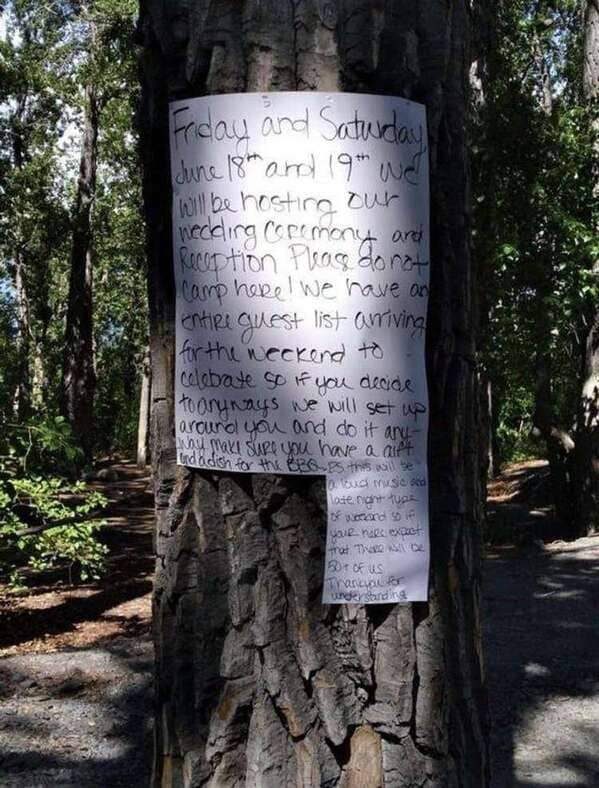 Friday and Saturday
June 18th and 19th we
will be hosting our
wedding ceremony and
Reception Please do not
camp here! We have an
entire guest list arriving
for the weekend to
celebrate so if you decide
to anyways we will set up
around you and do it any-
way make sure you have a gift
and a dish for the BBQ. PS. this will be
a loud music and
late night type
of weekend so if
your here expect
that. There will be
50+ of us
Thankyou for
understanding